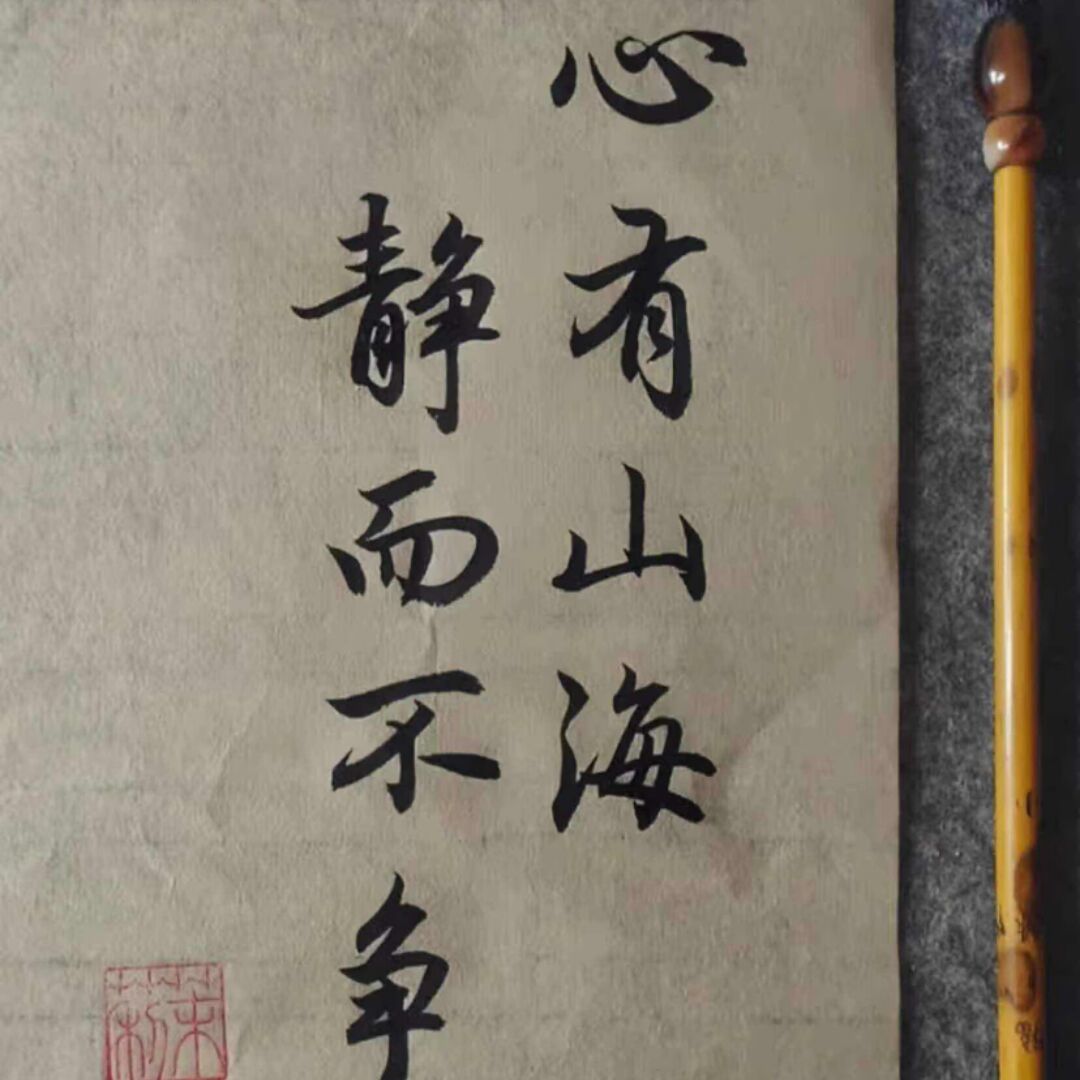 心有山海
静而不争
茉莉